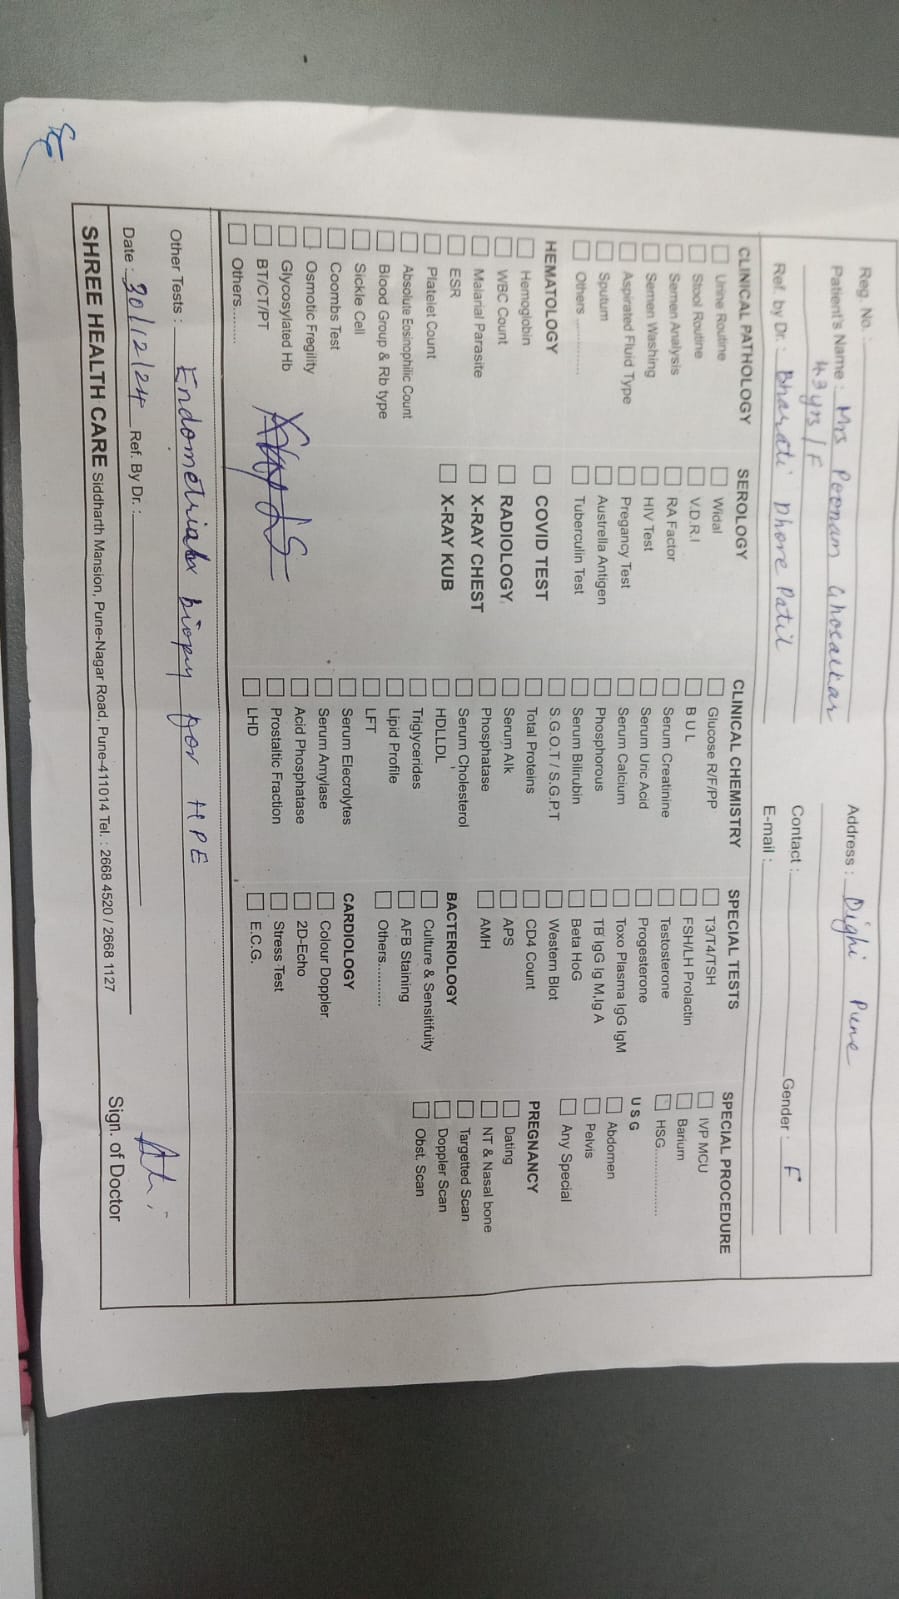 Reg. No. :
Patient's Name : Mrs Poonam Ghosalkar
43 yrs / F
Ref. by Dr. : Bharati Dhore Patil
Address : Dighi Pune
Contact : Gender : F
E-mail :
CLINICAL PATHOLOGY
Urine Routine
Stool Routine
Semen Analysis
Semen Washing
Aspirated Fluid Type
Sputum
Others ..............
HEMATOLOGY
Hemoglobin
WBC Count
Malarial Parasite
ESR
Platelet Count
Absolute Eosinophilic Count
Blood Group & Rb type
Sickle Cell
Coombs Test
Osmotic Fregility
Glycosylated Hb
BT/CT/PT
Others.........
SEROLOGY
Widal
V.D.R.I
RA Factor
HIV Test
Pregancy Test
Austrella Antigen
Tuberculin Test
COVID TEST
RADIOLOGY
X-RAY CHEST
X-RAY KUB
CLINICAL CHEMISTRY
Glucose R/F/PP
B U L
Serum Creatinine
Serum Uric Acid
Serum Calcium
Phosphorous
Serum Bilirubin
S.G.O.T / S.G.P.T
Total Proteins
Serum Alk
Phosphatase
Serum Cholesterol
HDLLDL
Triglycerides
Lipid Profile
LFT
Serum Elecrolytes
Serum Amylase
Acid Phosphatase
Prostaltic Fraction
LHD
SPECIAL TESTS
T3/T4/TSH
FSH/LH Prolactin
Testosterone
Progesterone
Toxo Plasma IgG IgM
TB IgG Ig M,Ig A
Beta HoG
Western Blot
CD4 Count
APS
AMH
BACTERIOLOGY
Culture & Sensitifuity
AFB Staining
Others..........
CARDIOLOGY
Colour Doppler
2D-Echo
Stress Test
E.C.G.
SPECIAL PROCEDURE
IVP MCU
Barium
HSG................
U S G
Abdomen
Pelvis
Any Special
PREGNANCY
Dating
NT & Nasal bone
Targetted Scan
Doppler Scan
Obst. Scan
Other Tests : Endometrial biopsy for HPE
Date : 30/12/24 Ref. By Dr. :
Sign. of Doctor
SHREE HEALTH CARE Siddharth Mansion, Pune-Nagar Road, Pune-411014 Tel. : 2668 4520 / 2668 1127